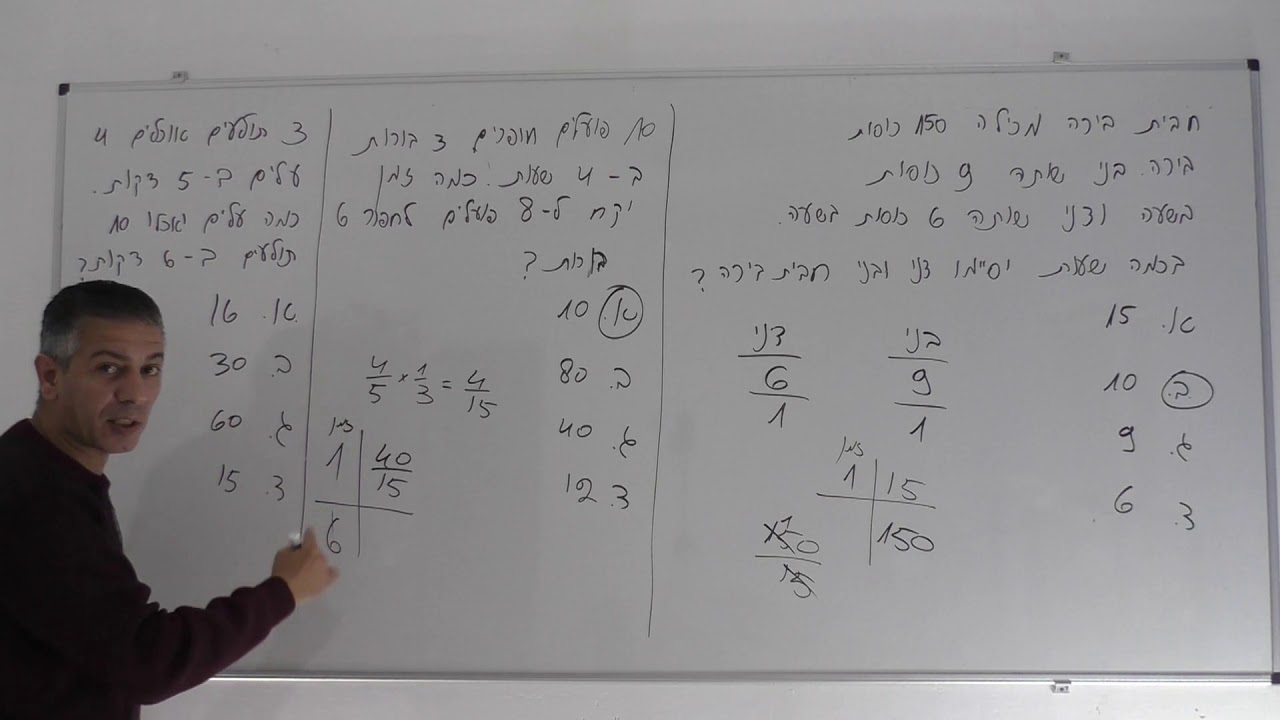 חבית בירה מכילה 150 כוסות
בירה. בני שותה 9 כוסות
בשעה ודני שותה 6 כוסות בשעה.
בכמה שעות יסיימו דני ובני חבית בירה?
א. 15
ב. 10
ג. 9
ד. 6
בני
9
1
דני
6
1
זמן
1 | 15
150
150
15
10 פועלים חופרים 3 בורות
ב-4 שעות. כמה זמן
יקח ל-8 פועלים לחפור 6
בורות?
א. 10
ב. 80
ג. 40
ד. 12
3 תולעים אוכלים 4
עלים ב-5 דקות.
כמה עלים יאכלו 10
תולעים ב-6 דקות?
א. 16
ב. 30
ג. 60
ד. 15
4/5 × 1/3 = 4/15
זמן
1 | 40/15
6